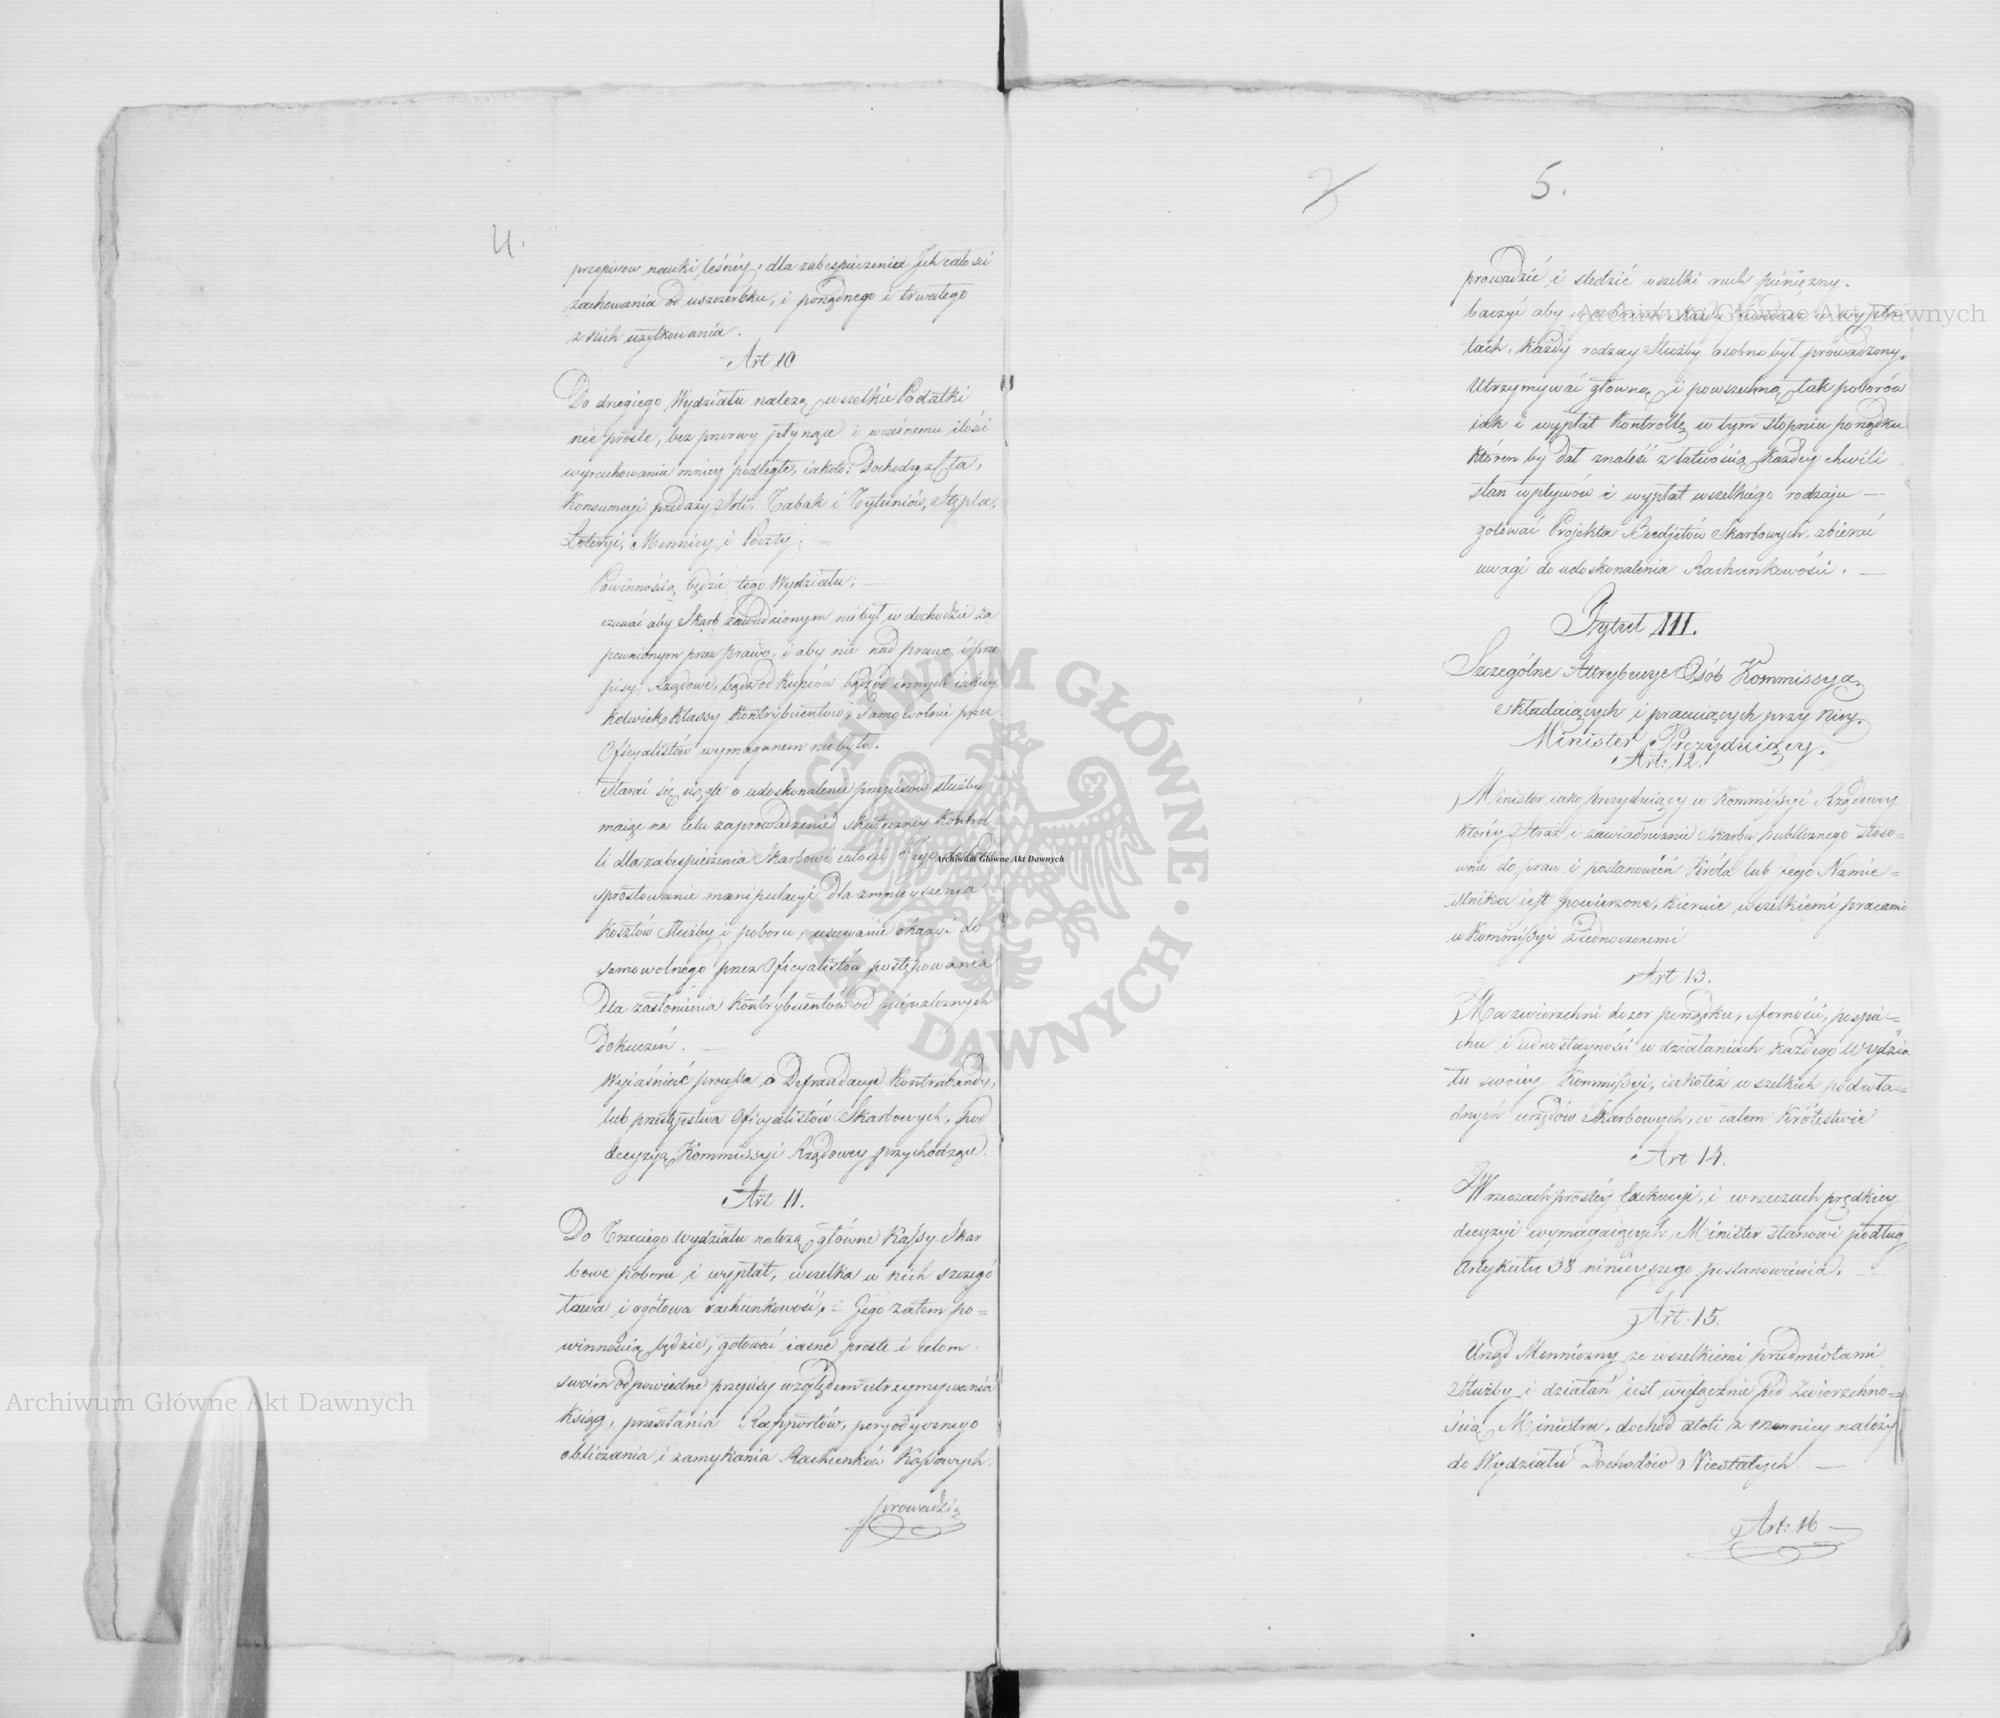 4.
przepisow nauki leśnéy; dla zabespieczenia Ich całości
zachowania od uszczerbku, i porządnego i trwałego
z nich użytkowania.
Art 10
Do drugiego Wydziału należą wszelkie Podatki
nie proste, bez przerwy płynące i wcześnemu ilości
wyrachowaniu mniey podległe, iakoto: Dochody z Cła,
Konsumcyi przedaży Soli, Tabak i Tytuniów, Stępla,
Loteryi, Mennicy i Poczty;
Powinnością będzie tego Wydziału:
czuwać aby Skarb zawiedzionym nie był w dochodzie za
pewnionym przez prawo, i aby nic nad prawo i prze
pisy Rządowe, bądź od Kupców bądź od innych iakiey
kolwiek Klassy Kontrybuentów, samowolnie przez
Oficyalistów wymaganem nie było.
Starać się ciągle o udoskonalenie przepisów służby
maiąc na celu zaprowadzenie skuteczney Kontrol
li dla zabespieczenia Skarbowi całości
sprostowanie manipulacyi dla zmnieyszenia
kosztów służby i poboru, usuwanie okazyi do
samowolnego przez Oficyalistów postępowania
dla zasłonienia Kontrybuentów od nienależnych
dokuczeń.
Wyiaśnieć processa o Defraudacye Kontrabandy,
lub przestępstwa Oficyalistów Skarbowych, pod
decyzyą Kommissyi Rządowey przychodzące.
Art 11.
Do Trzeciego Wydziału należą główne Kassy Skar
bowe poboru i wypłat, wszelka w nich szczegó
łowa i ogółowa rachunkowość; Jego zatem po=
winnością będzie, gotować iasne proste i celom
swoim odpowiedne przepisy względem utrzymywania
Ksiąg, przesłania Rapportów, peryodycznego
obliczania i zamykania Rachunków Kassowych.
prowadzić
5.
prowadzić i sledzić wszelki ruch pieniężny.
baczyć aby w poborach
tach, każdy rodzay Służby osobno był prowadzony.
Utrzymywać główną i powszechną tak poborów
iak i wypłat Kontrollę w tym stopniu porządku
któren by dał znaleść z łatwością każdey chwili
stan wpływów i wypłat wszelkiego rodzaju —
gotować Projekta Budjetów Skarbowych, zbierać
uwagi do udoskonalenia Rachunkowości. —
Tytuł III.
Szczególne Attrybucye Osób Kommissyą
składaiących i pracuiących przy Niey.
Minister Prezyduiący.
Art: 12.
Minister iako prezyduiący w Kommissyi Rządowey
którey Straż i zawiadowanie Skarbu publicznego stoso=
wnie do praw i postanowień Króla lub Jego Namie=
stnika iest powierzone, kieruie wszelkiemi pracami
w Kommissyi ziednoczonemi
Art 13.
Ma zwierzchni dozor porządku, sforności, pospie=
chu i iednostayności w działaniach każdego Wydzia
łu swoiey Kommissyi, iakoteż wszelkich podwła=
dnych urzędów Skarbowych, w całem Królestwie
Art 14.
W rzeczach prostéy Exekucyi, i w rzeczach prędkiey
decyzyi wymagaiących, Minister stanowi podług
Artykułu 38 ninieyszego postanowienia.
Art: 15.
Urząd Menniczny ze wszelkiemi przedmiotami
Służby i działań iest wyłącznie pod zwierzchno=
ścią Ministra, dochód atoli z mennicy należy
do Wydziału Dochodów Niestałych. —
Art: 16 —
Archiwum Główne Akt Dawnych
Archiwum Główne Akt Dawnych
Archiwum Główne Akt Dawnych
ARCHIWUM GŁÓWNE · AKT DAWNYCH ·